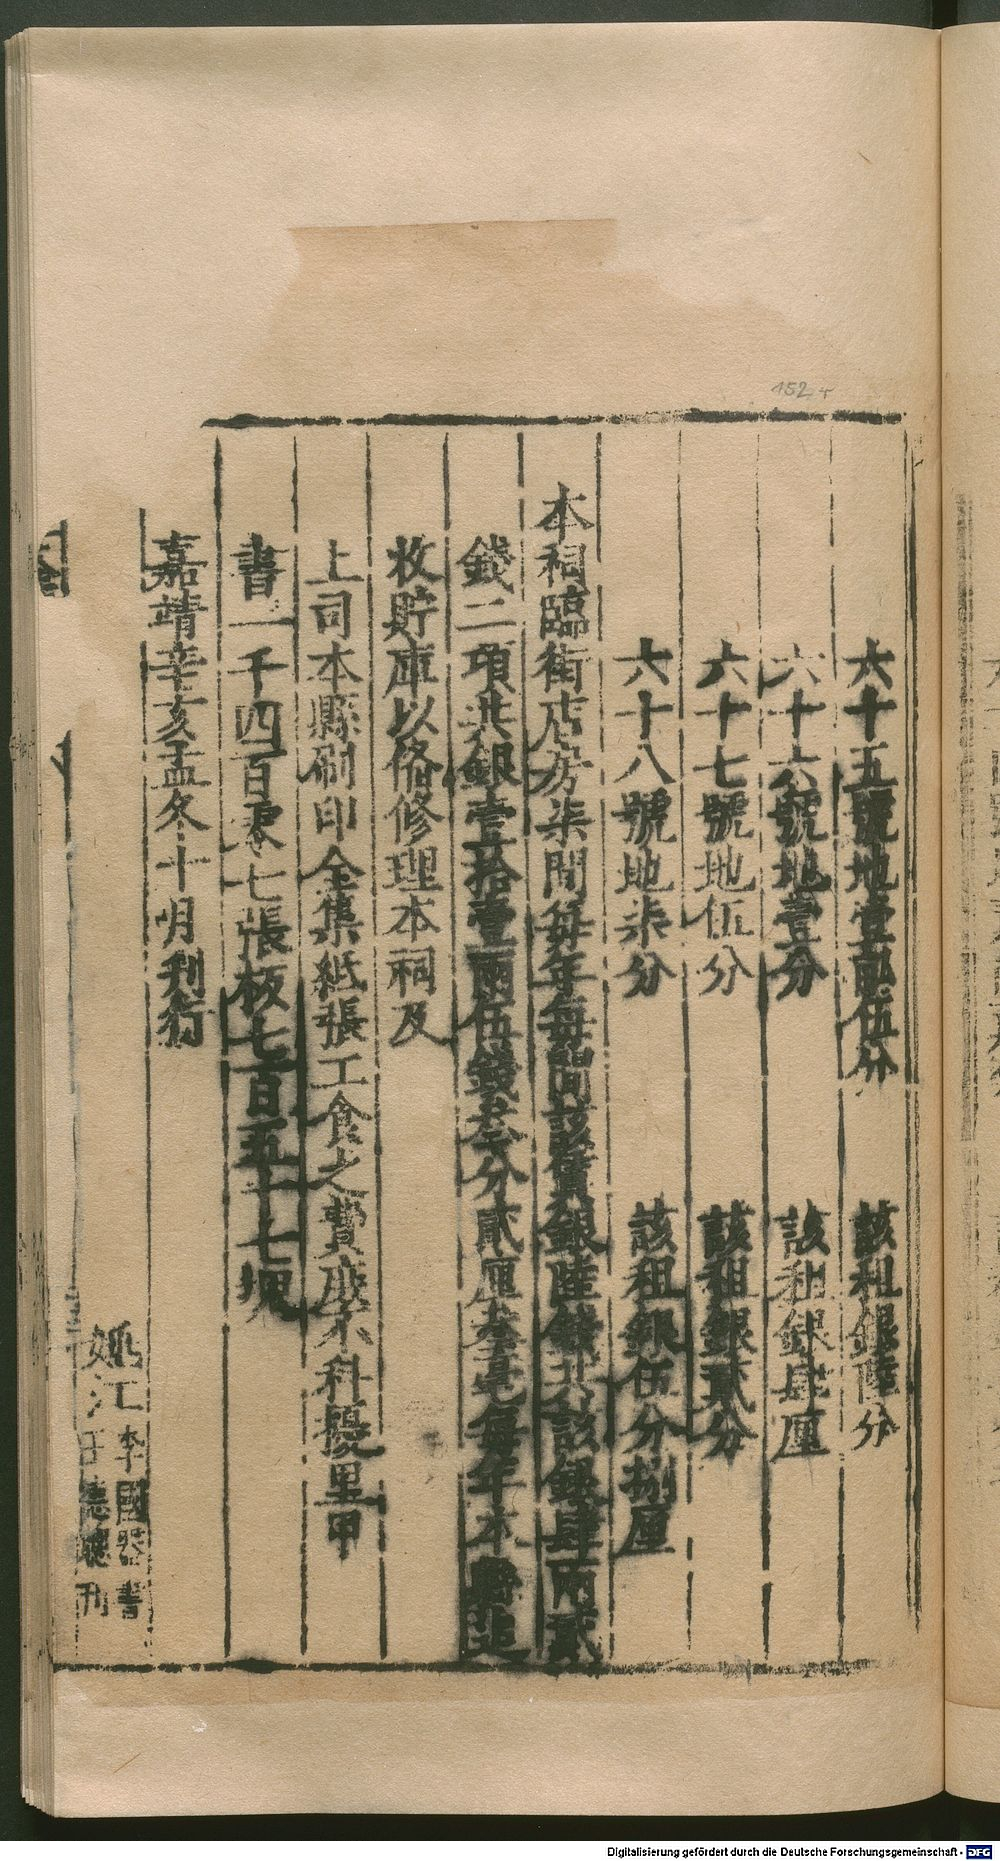 152r
六十五號地壹畝伍分　該租銀陸分
六十六號地壹分　該租銀肆厘
六十七號地伍分　該租銀貳分
六十八號地柒分　該租銀伍分捌厘
本祠臨街店房柒間每年每間該賃銀陸錢共該銀肆兩貳
錢二項共銀壹拾壹兩伍錢叁分貳厘叁毫每年本縣追
收貯庫以俻修理本祠及
上司本縣刷印全集紙張工食之費庶不科擾里甲
書一千四百零七張板七百五十七塊
嘉靖辛亥孟冬十月刊行
姚江李國器書
王德聰刊
Digitalisierung gefördert durch die Deutsche Forschungsgemeinschaft - DFG